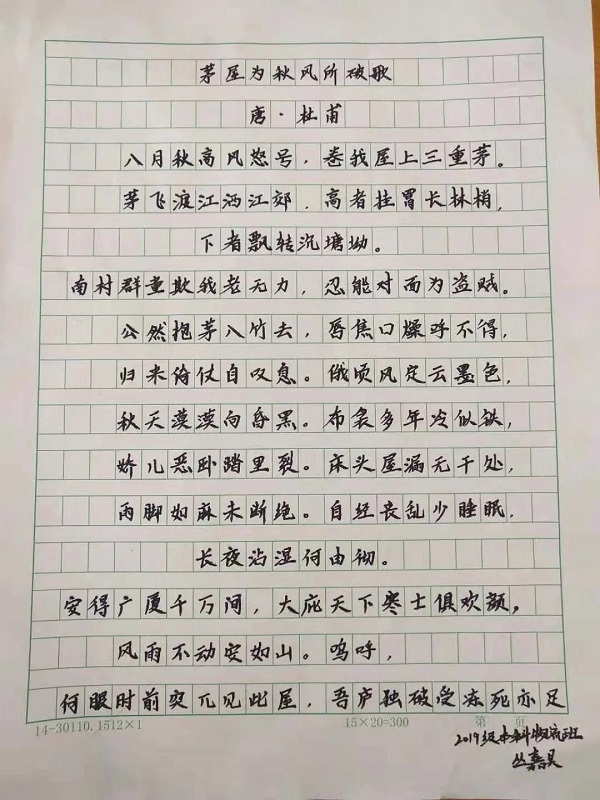 茅屋为秋风所破歌
唐·杜甫
八月秋高风怒号，卷我屋上三重茅。
茅飞渡江洒江郊，高者挂罥长林梢，
下者飘转沉塘坳。
南村群童欺我老无力，忍能对面为盗贼。
公然抱茅入竹去，唇焦口燥呼不得，
归来倚仗自叹息。俄顷风定云墨色，
秋天漠漠向昏黑。布衾多年冷似铁，
娇儿恶卧踏里裂。床头屋漏无干处，
雨脚如麻未断绝。自经丧乱少睡眠，
长夜沾湿何由彻。
安得广厦千万间，大庇天下寒士俱欢颜，
风雨不动安如山。呜呼，
何眼时前突兀见此屋，吾庐独破受冻死亦足
14-30110.1512×1 15×20=300 第 页
2019级本科物流班
丛嘉昊